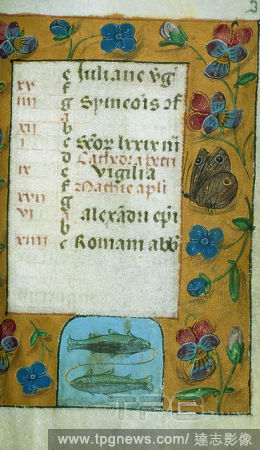 3
e Juliane vgi
xv f
iiii g Symeois
a
xii b
i c Scor lxxix m
d Cathedra petri
ix e Vigilia
f Mathie apli
xvii g
vi a Alexadri epi
b
xiiii c Romani abb
TPG
www.tpgnews.com / 達志影像